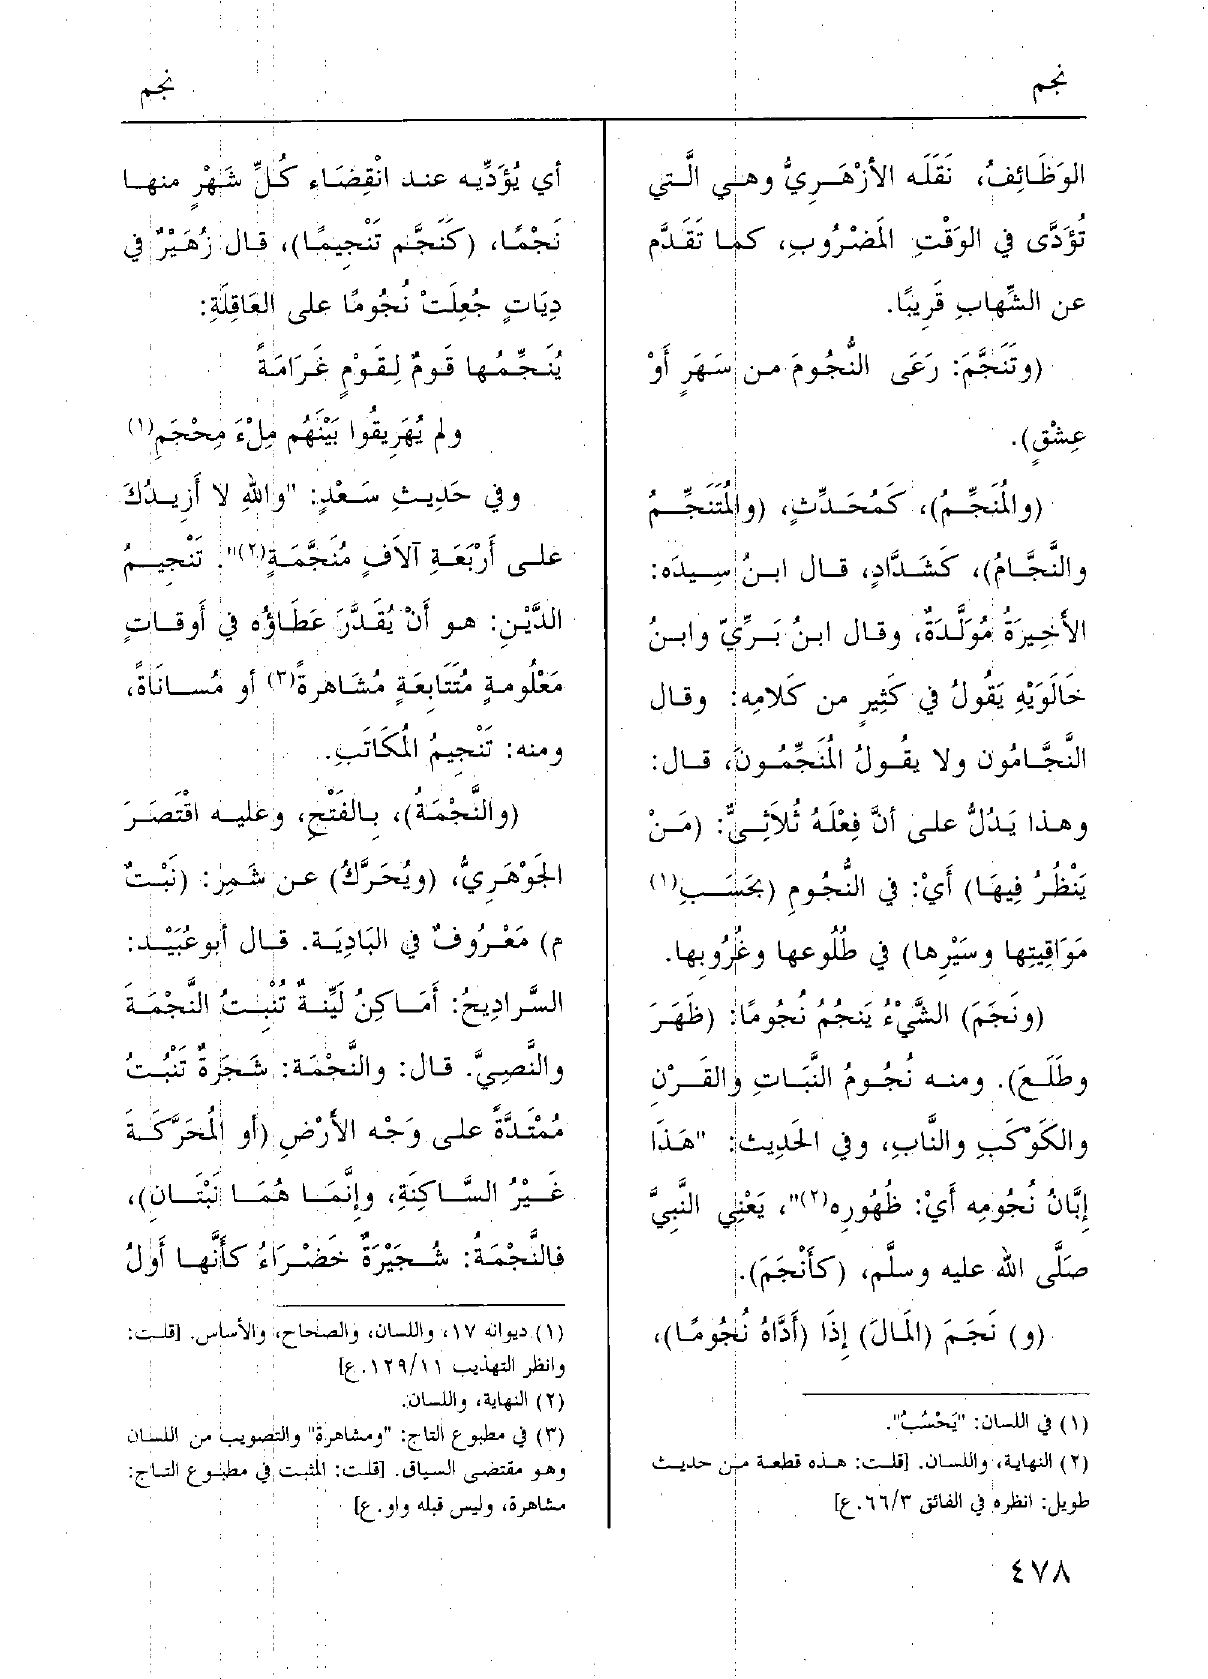 نجم
نجم
الوَظَائِفُ، نَقَلَه الأزْهَرِيُّ وهي الَّتي
تُؤَدَّى في الوَقْتِ المَضْرُوبِ، كما تَقَدَّم
عن الشِّهابِ قَرِيبًا.
(وتَنَجَّمَ: رَعَى النُّجُومَ من سَهَرٍ أَوْ
عِشْقٍ).
(والمُنَجِّمُ)، كَمُحَدِّثٍ، (والمُتَنَجِّمُ
والنَّجَّامُ)، كَشَدَّادٍ، قال ابنُ سِيدَه:
الأخِيرَةُ مُوَلَّدَةٌ، وقال ابنُ بَرِّيّ وابنُ
خَالَوَيْهِ يَقُولُ في كَثِيرٍ من كَلامِه: وقال
النَّجَّامُون ولا يقُولُ المُنَجِّمُونَ، قال:
وهذا يَدُلُّ على أنَّ فِعْلَهُ ثُلاَثِيٌّ: (مَنْ
يَنْظُرُ فِيهَا) أيْ: في النُّجُومِ (بَحَسَبِ(١)
مَوَاقِيتِها وسَيْرِها) في طُلُوعها وغُرُوبِها.
(ونَجَمَ) الشَّيْءُ يَنجُمُ نُجُومًا: (ظَهَرَ
وطَلَعَ). ومنه نُجُومُ النَّبَاتِ والقَرْنِ
والكَوْكَبِ والنَّابِ، وفي الحَدِيث: "هَذَا
إبَّانُ نُجُومِه أيْ: ظُهُورِه(٢)"، يَعْنِي النَّبِيَّ
صَلَّى الله عليه وسلَّم، (كأَنْجَمَ).
(و) نَجَمَ (المَالَ) إذَا (أَدَّاهُ نُجُومًا)،
(١) في اللسان: "يَحْسُبُ".
(٢) النهاية، واللسان. [قلت: هذه قطعة من حديث
طويل: انظره في الفائق ٦٦/٣.ع]
أي يُؤَدِّيه عند انْقِضَاءِ كُلِّ شَهْرٍ منها
نَجْمًا، (كَنَجَّم تَنْجِيمًا)، قال زُهَيْرٌ في
دِيَاتٍ جُعِلَتْ نُجُومًا على العَاقِلَةِ:
يُنَجِّمُها قَومٌ لِقَوْمٍ غَرَامَةً
ولم يُهَرِيقُوا بَيْنَهُم مِلْءَ مِحْجَمِ(١)
وفي حَدِيثِ سَعْدٍ: "واللهِ لا أَزِيدُكَ
على أَرْبَعَةِ آلاَفٍ مُنَجَّمَةٍ(٢)". تَنْجِيمُ
الدَّيْنِ: هو أَنْ يُقَدَّرَ عَطَاؤُه في أَوقاتٍ
مَعْلُومةٍ مُتَتَابعَةٍ مُشَاهرةً(٣) أو مُساناةً،
ومنه: تَنْجِيمُ المُكَاتَبِ.
(والنَّجْمَةُ)، بالفَتْحِ، وعليه اقْتَصَرَ
الجَوْهَرِيُّ، (ويُحَرَّكُ) عن شَمِرٍ: (نَبْتٌ
م) مَعْرُوفٌ في البَادِيَة. قال أبوعُبَيْد:
السَّرادِيحُ: أَمَاكِنُ لَيِّنةٌ تُنْبِتُ النَّجْمَةَ
والنَّصِيَّ. قال: والنَّجْمَة: شَجَرَةٌ تَنْبُتُ
مُمْتَدَّةً على وَجْه الأَرْضِ (أو المُحَرَّكَةُ
غَيْرُ السَّاكِنَةِ، وإنَّمَا هُمَا نَبْتَانِ)،
فالنَّجْمَةُ: شُجَيْرَةٌ خَضْرَاءُ كأنَّها أَولُ
(١) ديوانه ١٧، واللسان، والصحاح، والأساس. [قلت:
وانظر التهذيب ١٢٩/١١.ع]
(٢) النهاية، واللسان.
(٣) في مطبوع التاج: "ومشاهرة" والتصويب من اللسان
وهو مقتضى السياق. [قلت: المثبت في مطبوع التاج:
مشاهرة، وليس قبله واو.ع]
٤٧٨